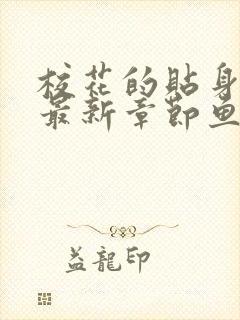 校花的贴身
最新章节鱼
益龙印